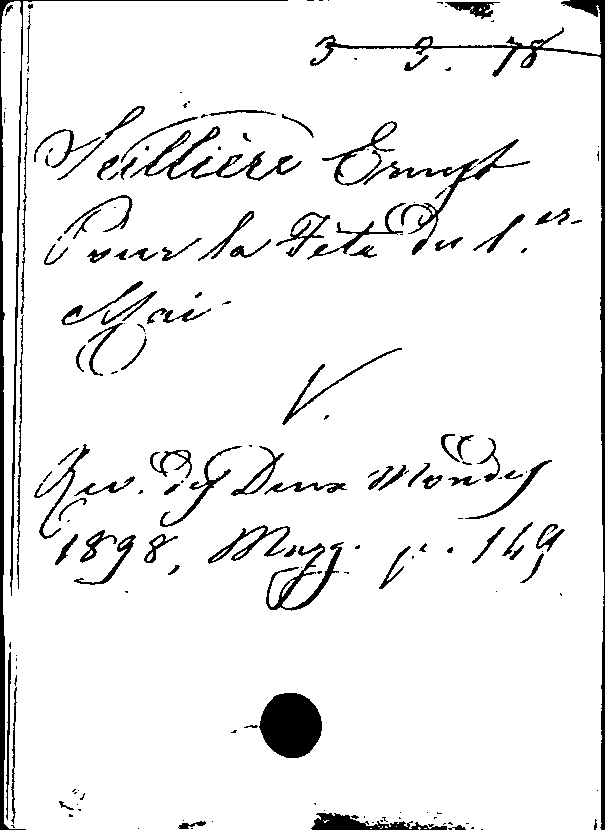 3. 3. 78
Seillière Ernest
Pour la Fête du 1.er
Mai
V.
Rev. des Deux Mondes
1898, Marz. p. 149